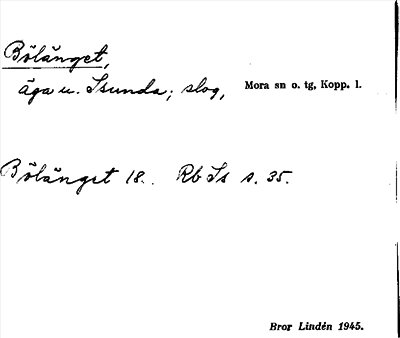 Bölänget,
äga u. Isunda; slog, Mora sn o. tg, Kopp. l.
Bölänget 18. Rb Is s. 35.
Bror Lindén 1945.